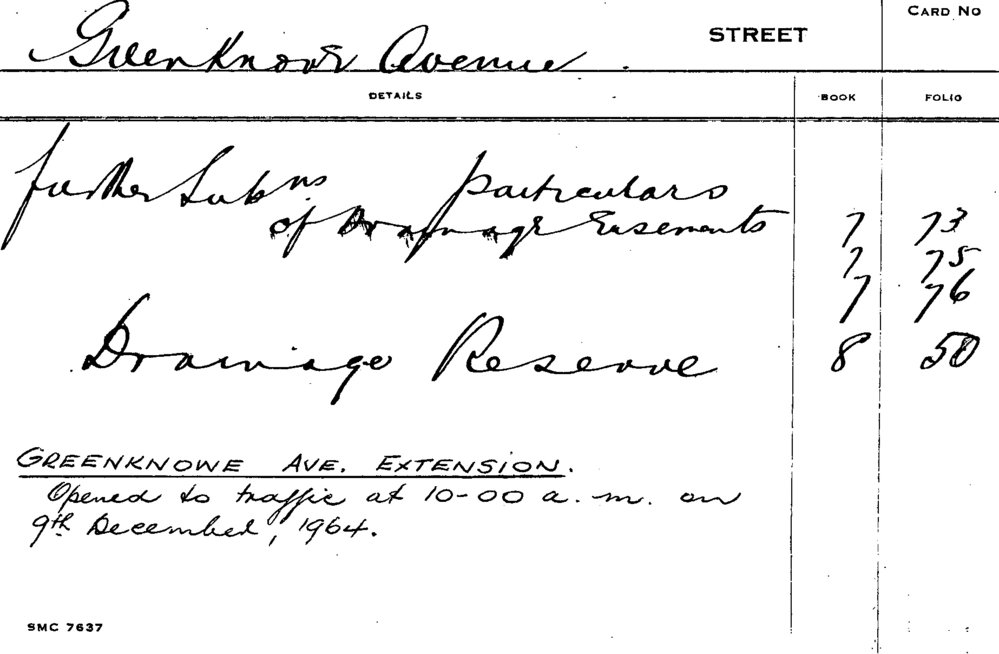 Greenknowe Avenue. STREET CARD NO
DETAILS BOOK FOLIO
further Subns particulars
of Drainage Easements 7 73
7 75
7 76
Drainage Reserve 8 50
GREENKNOWE AVE. EXTENSION.
Opened to traffic at 10-00 a.m. on
9th December, 1964.
SMC 7637